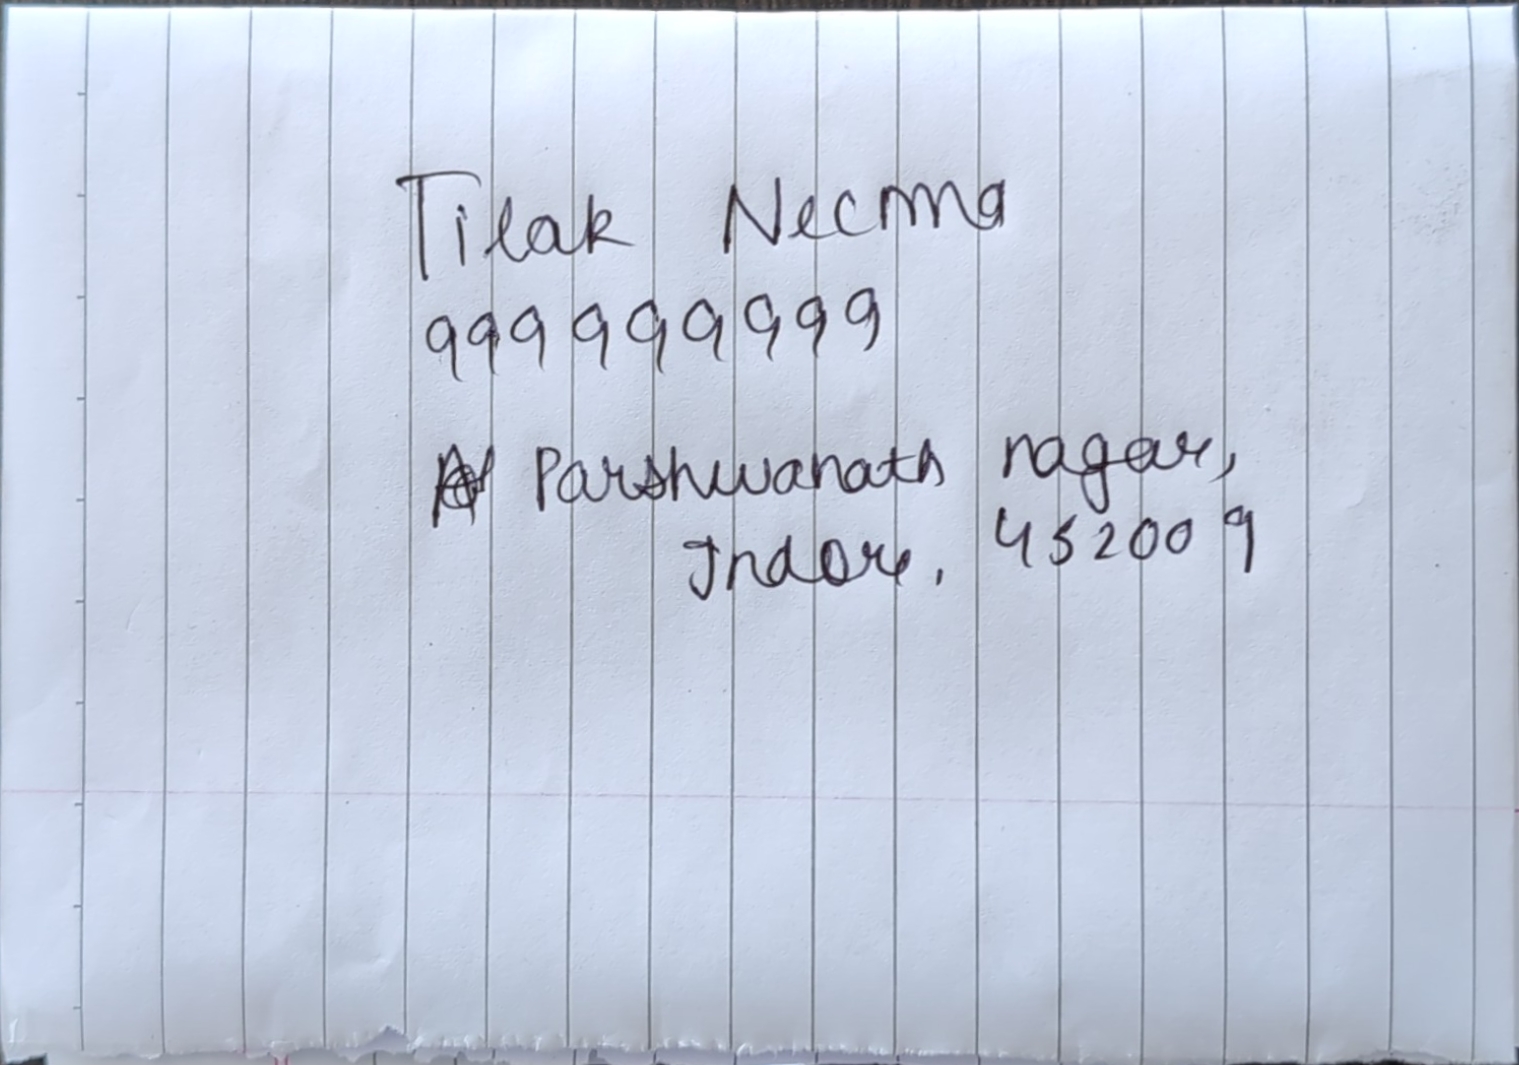 Tilak
999999999
Parshwanath nagar,
Indore, 452009